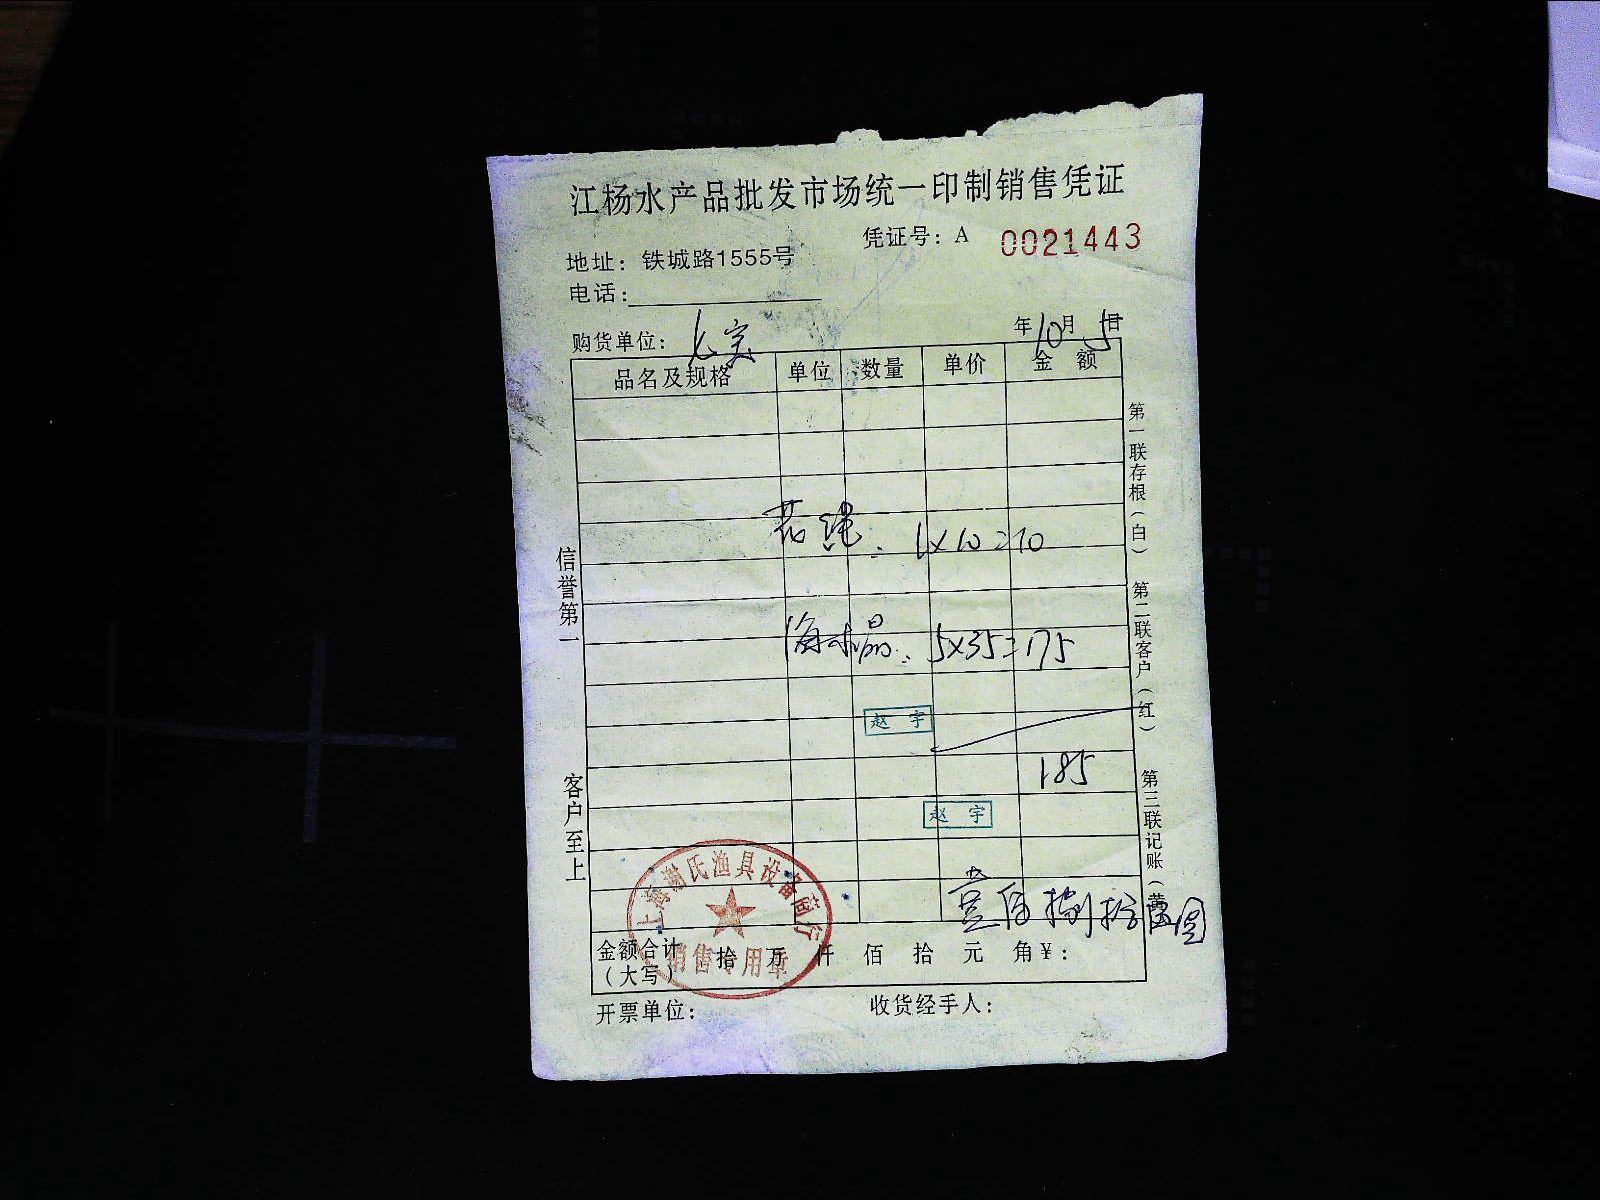 江杨水产品批发市场统一印制销售凭证
凭证号：A 0021443
地址：铁城路1555号
电话：
购货单位： 年10月5日
品名及规格 单位 数量 单价 金额
花绳. 1×10=10
海水晶. 5×35=175
赵 宇
185
赵 宇
壹佰捌拾伍圆
金额合计（大写） 拾 万 仟 佰 拾 元 角￥：
开票单位： 收货经手人：
信誉第一
客户至上
第一联存根（白）
第二联客户（红）
第三联记账（黄）
上海谢氏渔具设备商行
销售专用章